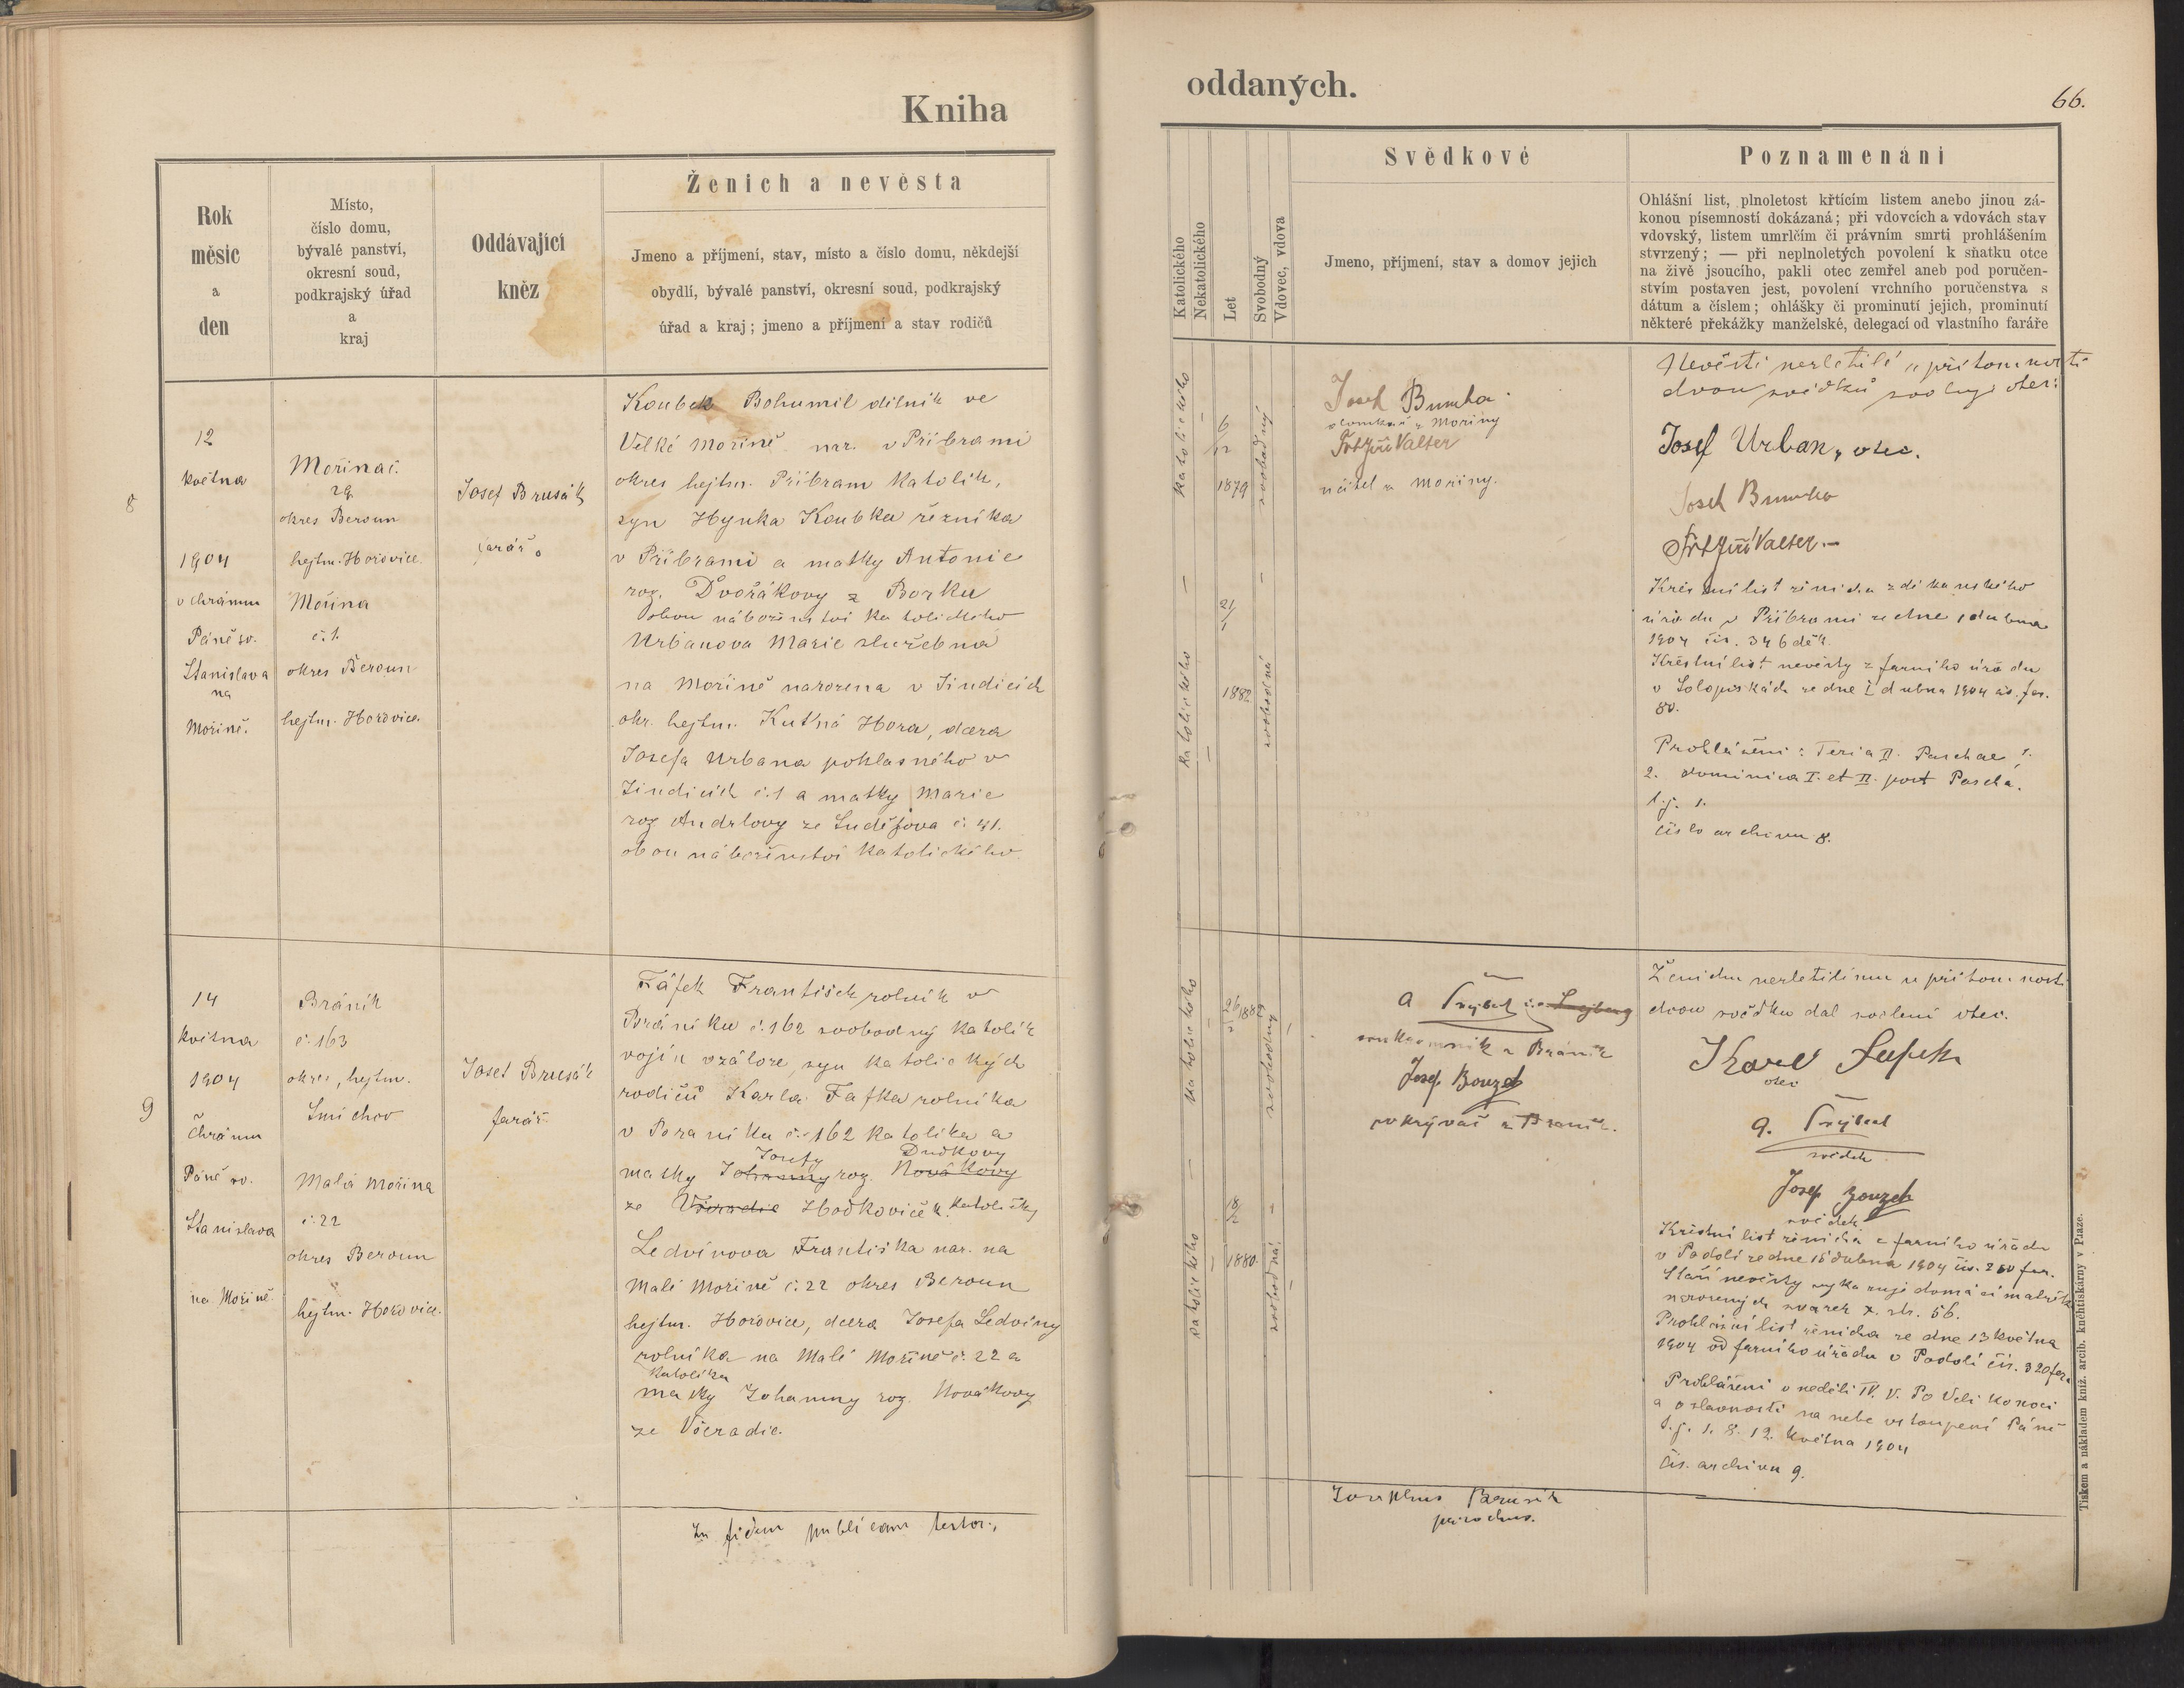 Kniha
oddaných.
66.
Rok
měsíc
a
den
Místo,
číslo domu,
bývalé panství,
okresní soud,
podkrajský úřad
a
kraj
Oddávající
kněz
Ženich a nevěsta
Jmeno a příjmení, stav, místo a číslo domu, někdejší
obydlí, bývalé panství, okresní soud, podkrajský
úřad a kraj; jmeno a příjmení a stav rodičů
Katolického
Nekatolického
Let
Svobodný
Vdovec, vdova
Svědkové
Jmeno, příjmení, stav a domov jejich
Poznamenání
Ohlášní list, plnoletost křtícím listem anebo jinou zá-
konou písemností dokázaná; při vdovcích a vdovách stav
vdovský, listem umrlčím či právním smrti prohlášením
stvrzený; — při neplnoletých povolení k sňatku otce
na živě jsoucího, pakli otec zemřel aneb pod poručen-
stvím postaven jest, povolení vrchního poručenstva s
dátum a číslem; ohlášky či prominutí jejich, prominutí
některé překážky manželské, delegací od vlastního faráře
8
12
května
1904
v chrámu
Páně sv.
Stanislava
na
Mořině.
Mořina č.
29
okres Beroun
hejtm. Hořovice.
Mořina
č. 1.
okres Beroun
hejtm. Hořovice.
Josef Brusák
farář.
Koubek Bohumil dělník ve
Velké Mořině nar. v Příbrami
okres hejtm. Příbram katolík,
syn Hynka Koubka řezníka
v Příbrami a matky Antonie
roz. Dvořákovy z Borku
obou náboženství katolického
Urbanova Marie služebná
na Mořině narozena v Jindicích
okr. hejtm. Kutná Hora, dcera
Josefa Urbana pohlasného v
Jindicích č. 1 a matky Marie
roz Andrlovy ze Suděјova č. 41.
obou náboženství katolického
katolického
6
12
1879
svobodný
katolického
21
1
1882
svobodná
Josef
z Mořiny
Jiří Valter
učitel z Mořiny.
Nevěstě nezletilé u přítomnosti
dvou svědků svoluje otec:
Josef Urban, otec.
Josef
Jiří Valter.—
Křestní list ženicha z děkanského
úřadu v Příbrami ze dne 1 dubna
1904 čís. 346 děk.
Křestní list nevěsty z farního úřadu
v Solopyskách ze dne 2 dubna 1904 čís. far.
80.
Prohlášení: Feria II. Paschae,
2. dominica I. et II. post Pascha.
t. j. 1.
číslo archivu 8.
9
14
května
1904
Chrámu
Páně sv.
Stanislava
na Mořině.
Bráník
č. 163
okres, hejtm.
Smíchov
Malá Mořina
č. 22
okres Beroun
hejtm. Hořovice.
Josef Brusák
farář
Fáfek František rolník v
Bráníku č. 162 svobodný katolík
vojín v záloze, syn katolických
rodičů Karla Fafka rolníka
v Braníku č. 162 katolíka a
Josefy Dudkovy
matky Johanny roz. Novákovy
ze Všeradic Hodkoviček katoličky
Ledvinova Františka nar. na
Malé Mořině č. 22 okres Beroun
hejtm. Hořovice, dcera Josefa Ledviny
rolníka na Malé Mořině č. 22 a
katolíka
matky Johanny roz. Novákovy
ze Všeradic.
katolického
26
2
1882
svobodný
katolického
18
2
1880.
svobodná
soukromník z Bráník
Josef Bouzek
pokrývač z Braník.
Ženichu nezletilému u přítomnosti
dvou svědku dal svolení otec.
Karel
otec
svědek
Josef Bouzek
svědek
Křestní list ženicha z farního úřadu
v Podolí ze dne 15 dubna 1904 čís. 250 far.
Stáří nevěsty vykazuje domácí matrika
narozených svazek X. str. 56.
Prohlášní list ženicha ze dne 13 května
1904 od farního úřadu v Podolí čís. 320 far.
Prohlášení v neděli IV. V. Po Velikonoci
a o slavnosti na nebe vstoupení Páně
t. j. 1. 8. 12. května 1904
čís. archivu 9.
In fidem publicam testor.,
Josephus Brusák
parochus.
Tiskem a nákladem kníž. arcib. knihtiskárny v Praze.